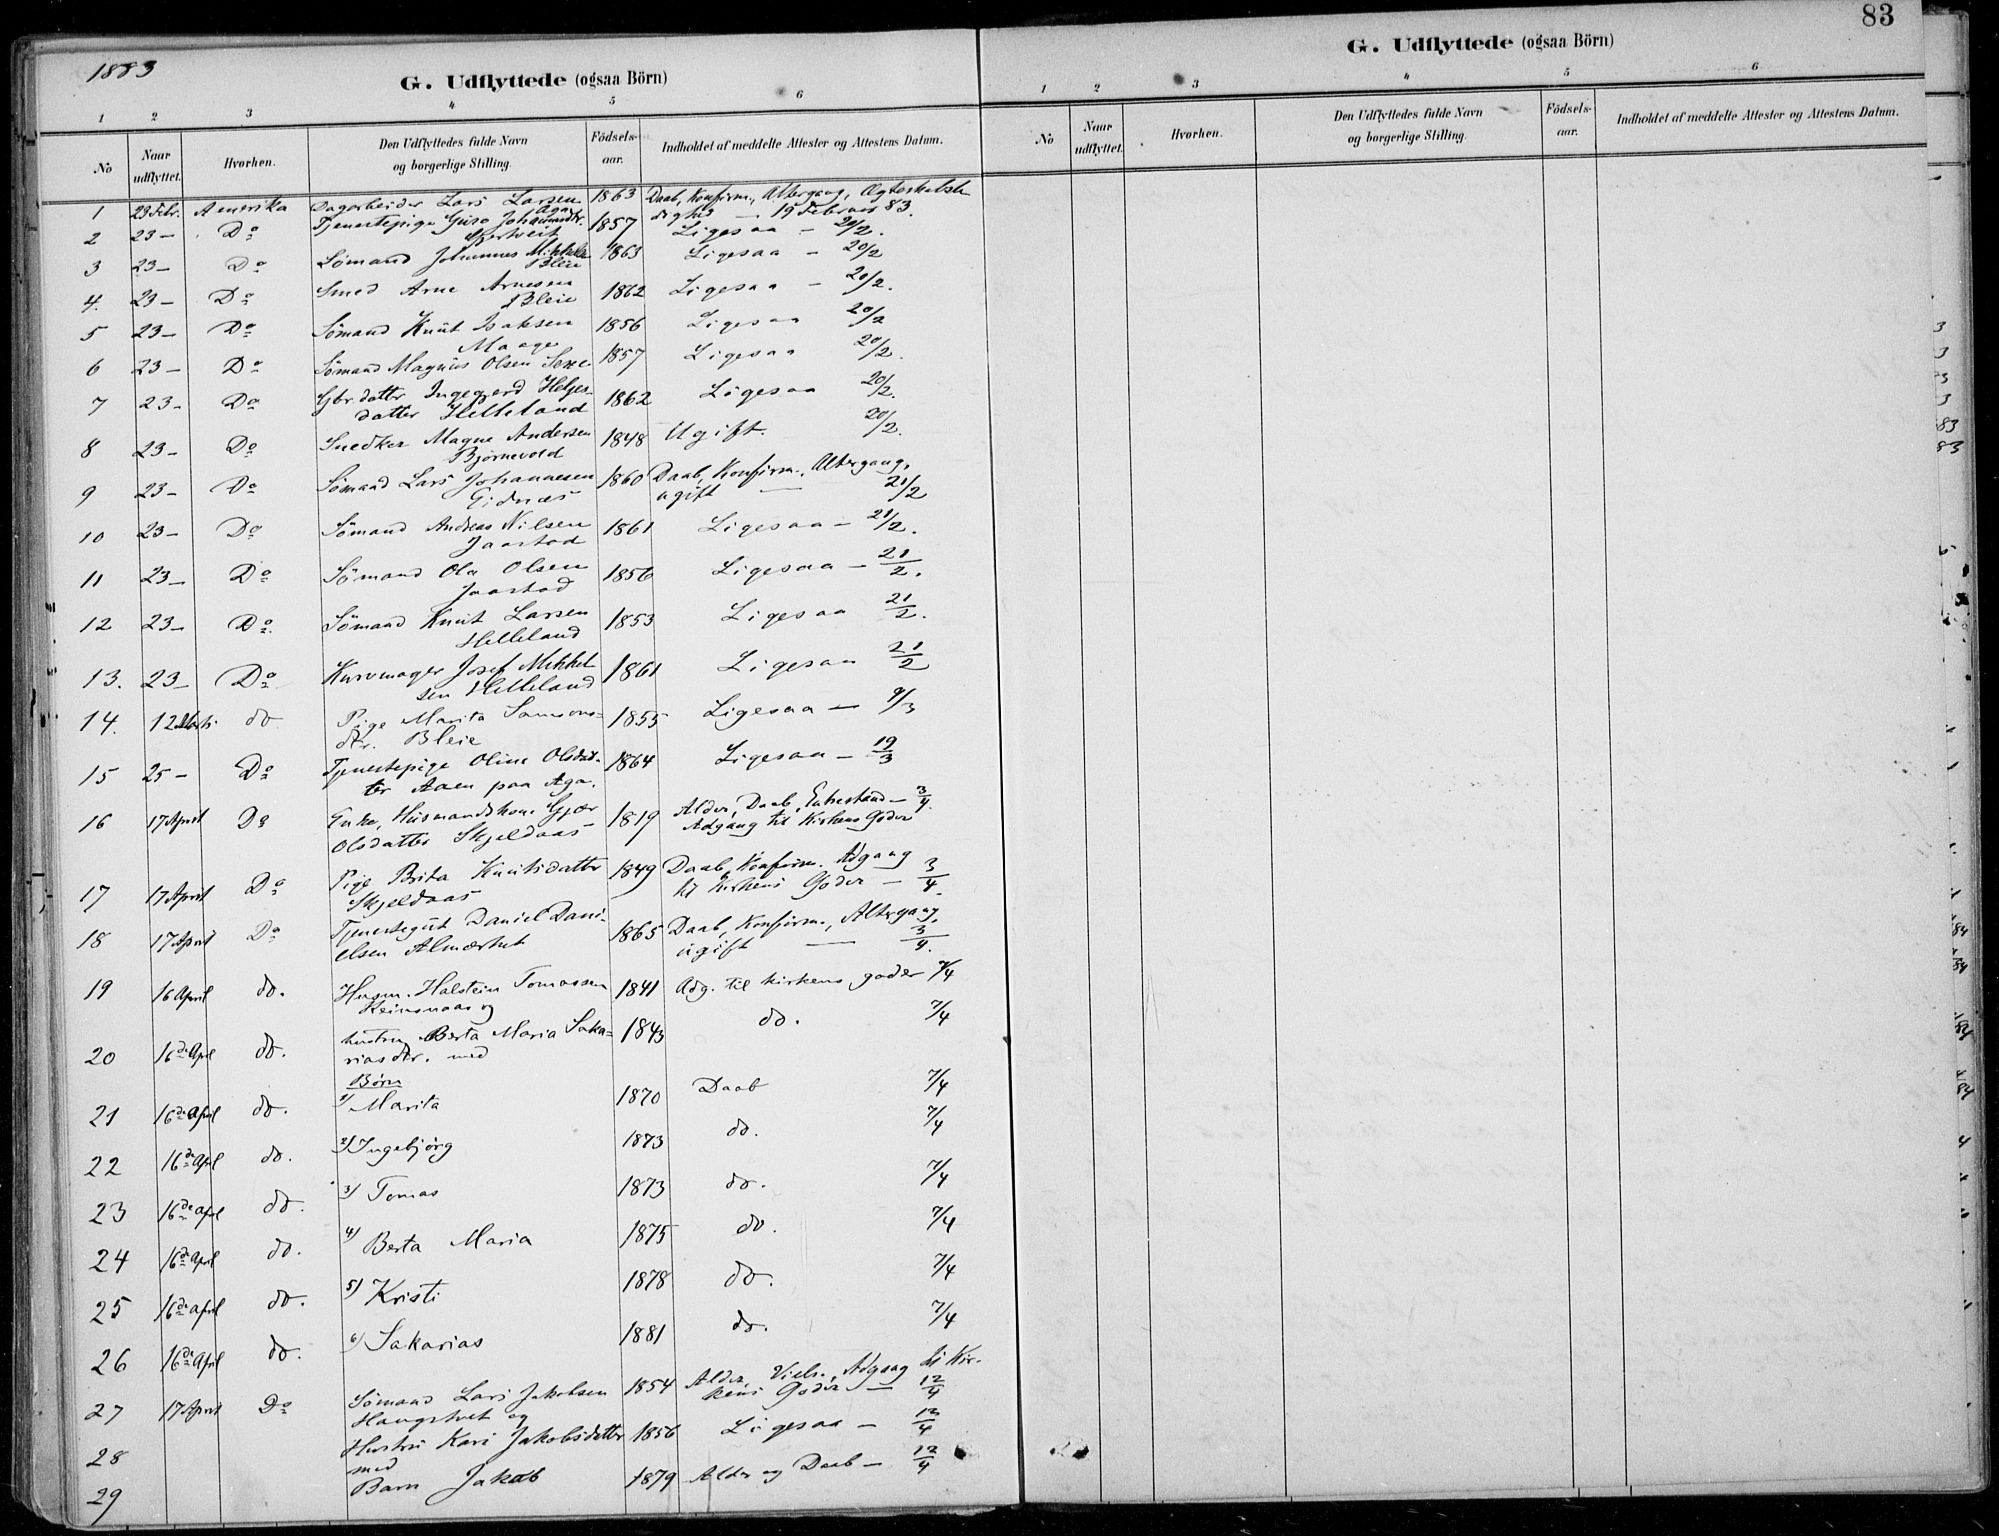 83
1883
G. Udflyttede (ogsaa Börn)
1 2 3 4 5 6
No
Naar udflyttet.
Hvorhen.
Den Udflyttedes fulde Navn og borgerlige Stilling.
Födsels-aar.
Indholdet af meddelte Attester og Attestens Datum.
1 23 Febr. Amerika Dagarbeider Lars Larsen Aga 1863 Daab, Konfirm., Altergang, Ægteskabsle
dighed — 19 Februar 83.
2 23 — Do Tjenestepige Guro Johannesdtr. 1857 Ligesaa — 20/2.
3 23 — Do Sömand Johannes Mikkels. 1863 Ligesaa — 20/2
Bleie
4. 23 — Do Smed Arne Arnesen 1862 Ligesaa — 20/2.
Bleie
5 23 — Do Sömand Knut Isaksen 1856 Ligesaa 20/2
Maage
6 23 — Do Sömand Magnus Olsen Sexe 1857 Ligesaa 20/2.
7 23 — Do Gbr.datter Ingegjerd Helges- 1862 Ligesaa 20/2.
datter Helleland
8 23 — Do Snedker Magne Andersen 1848 Ugift. 20/2.
Bjørnevold
9 23 — Do Sömand Lars Johannesen 1860 Daab, Konfirm., Altergang,
Eidnæs ugift — 21/2
10 23 — Do Sömand Andreas Nilsen 1861 Ligesaa — 21/2.
Jaastad
11 23 — Do Sömand Ola Olsen 1856 Ligesaa — 21/2.
Jaastad
12 23 — Do Sömand Knut Larsen 1853 Ligesaa 21/2.
Helleland
13. 23 — Do Kurvmager Josef Mikkel- 1861 Ligesaa 21/2
sen Helleland
14. 12 Marts do Pige Marita Samsons- 1855 Ligesaa — 9/3
dtr. Bleie
15 25 — Do Tjenestepige Oline Olsdat- 1864 Ligesaa — 19/3
ter Aaen paa Aga.
16 17 April Do Enke, Husmandskone Gjør 1819 Alder, Daab, Enkestand — 3/4.
Olsdatter Skjeldaas Adgang til Kirkens Goder
17 17 April Do Pige Brita Knutsdatter 1849 Daab, Konfirm. Adgang
Skjeldaas til Kirkens Goder — 3/4.
18 17 April Do Tjenestegut Daniel Dani- 1865 Daab, Konfirm., Altergang,
elsen Almerket ugift — 3/4.
19 16 April do. Husm. Halstein Tomassen 1841 Adg. til kirkens goder 7/4
Reinsnaas og
20 16de Apl do. hustru Berta Maria Saka- 1843 do. 7/4
riasdtr. med
Børn
21 16de April do. 1) Marita 1870 Daab 7/4
22 16de April do. 2) Ingebjörg 1873 do. 7/4
23 16de april do. 3) Tomas 1873 do. 7/4
24 16de April do. 4) Berta Maria 1875 do. 7/4
25 16de april do. 5) Kristi 1878 do. 7/4
26 16de April do. 6) Sakarias 1881 do. 7/4
27 17 April Do Sömand Lars Jakobsen 1854 Alder, Vielse, Adgang til Kir-
Haugstvet og kens Goder — 12/4
28 Hustru Kari Jakobsdatter 1856 Ligesaa — 12/4
med
29 Barn Jakob 1879 Alder og Daab — 12/4
G. Udflyttede (ogsaa Börn)
1 2 3 4 5 6
No
Naar udflyttet.
Hvorhen.
Den Udflyttedes fulde Navn og borgerlige Stilling.
Födsels-aar.
Indholdet af meddelte Attester og Attestens Datum.